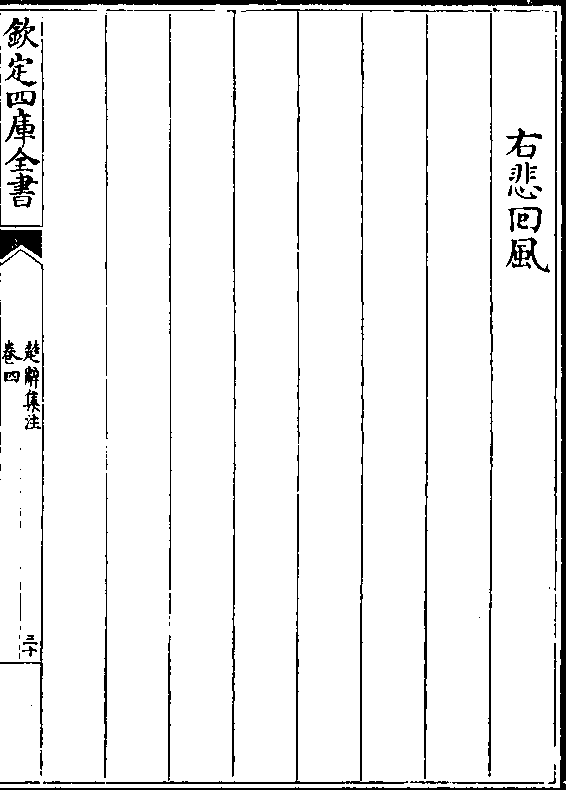 右悲回風
欽定四庫全書
楚辭集注
卷四
三十